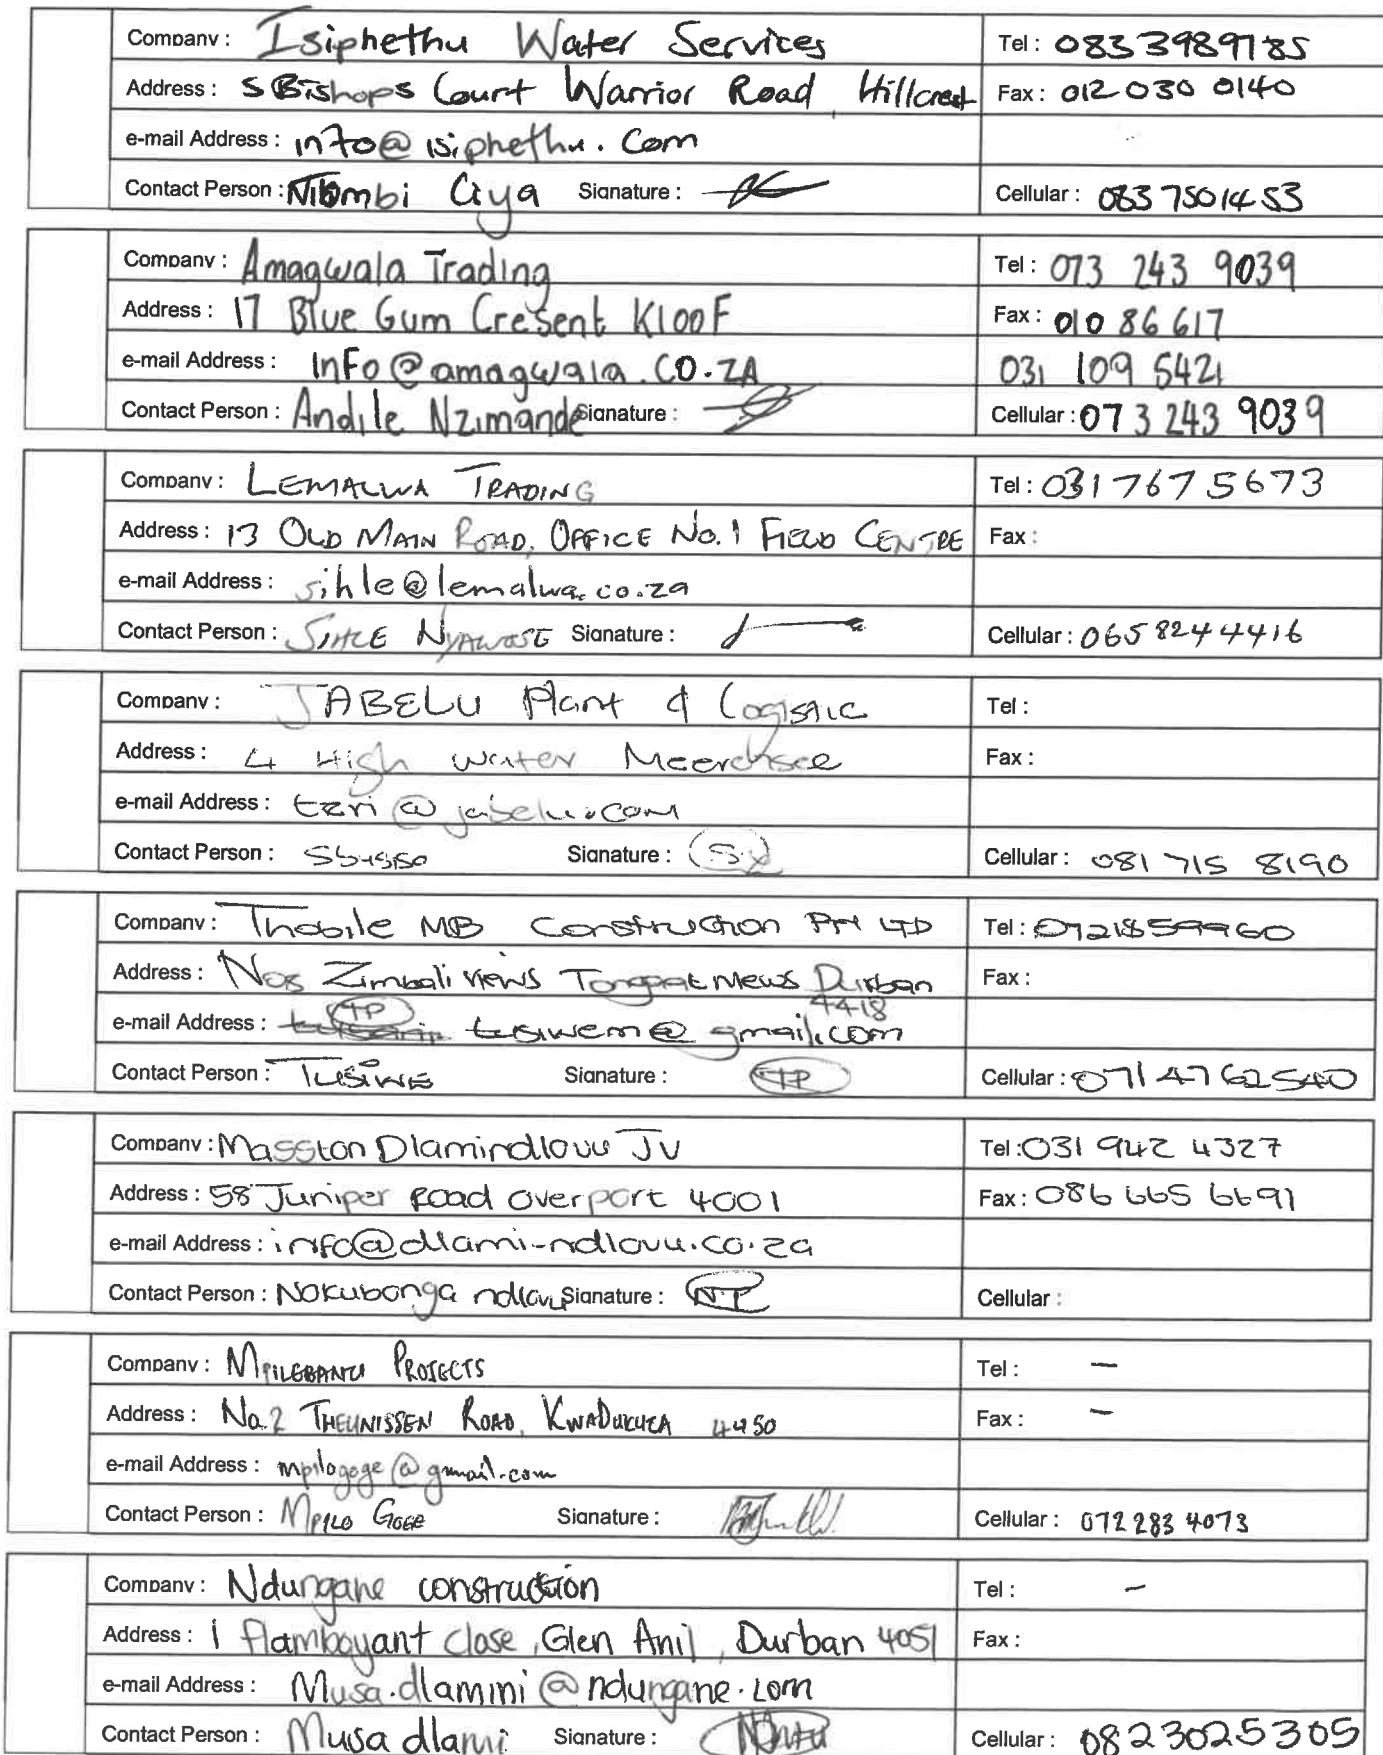 Company : Isiphethu Water Services Tel : 083 3989785
Address : 5 Bishops Court Warrior Road, Hillcrest Fax : 012 030 0140
e-mail Address : info@isiphethu.com
Contact Person : Ntombi Ciya Signature : Cellular : 083 7501453
Company : Amagwala Trading Tel : 073 243 9039
Address : 17 Blue Gum Cresent Kloof Fax : 010 86 617
e-mail Address : info@amagwala.co.za 031 109 5421
Contact Person : Andile Nzimande Signature : Cellular : 073 243 9039
Company : LEMALWA TRADING Tel : 031 767 5673
Address : 13 OLD MAIN ROAD, OFFICE No. 1 FIELD CENTRE Fax :
e-mail Address : sihle@lemalwa.co.za
Contact Person : SIHLE NYAWOSE Signature : Cellular : 065 824 4416
Company : JABELU Plant & Logistic Tel :
Address : 4 High Water Meerensee Fax :
e-mail Address : @jabelu.com
Contact Person : Sbusiso Signature : Cellular : 081 715 8190
Company : Thobile MB Construction Pty LTD Tel : 0721859960
Address : No8 Zimbali Views Tongaat Mews Durban Fax :
4418
e-mail Address : tusiwem@gmail.com
Contact Person : Tusiwe Signature : TP Cellular : 0714762540
Company : Masston Dlamindlovu JV Tel : 031 942 4327
Address : 58 Juniper Road overport 4001 Fax : 086 665 6691
e-mail Address : info@dlami-ndlovu.co.za
Contact Person : Nokubonga ndlovu Signature : Cellular :
Company : MPILEBANTU PROJECTS Tel : –
Address : No. 2 THEUNISSEN ROAD, KWADUKUZA 4450 Fax : –
e-mail Address : mpilogoge@gmail.com
Contact Person : MPILO GOGE Signature : Cellular : 072 283 4073
Company : Ndungane construction Tel : –
Address : 1 flamboyant close, Glen Anil, Durban 4051 Fax :
e-mail Address : Musa.dlamini@ndungane.com
Contact Person : Musa dlami Signature : Cellular : 0823025305